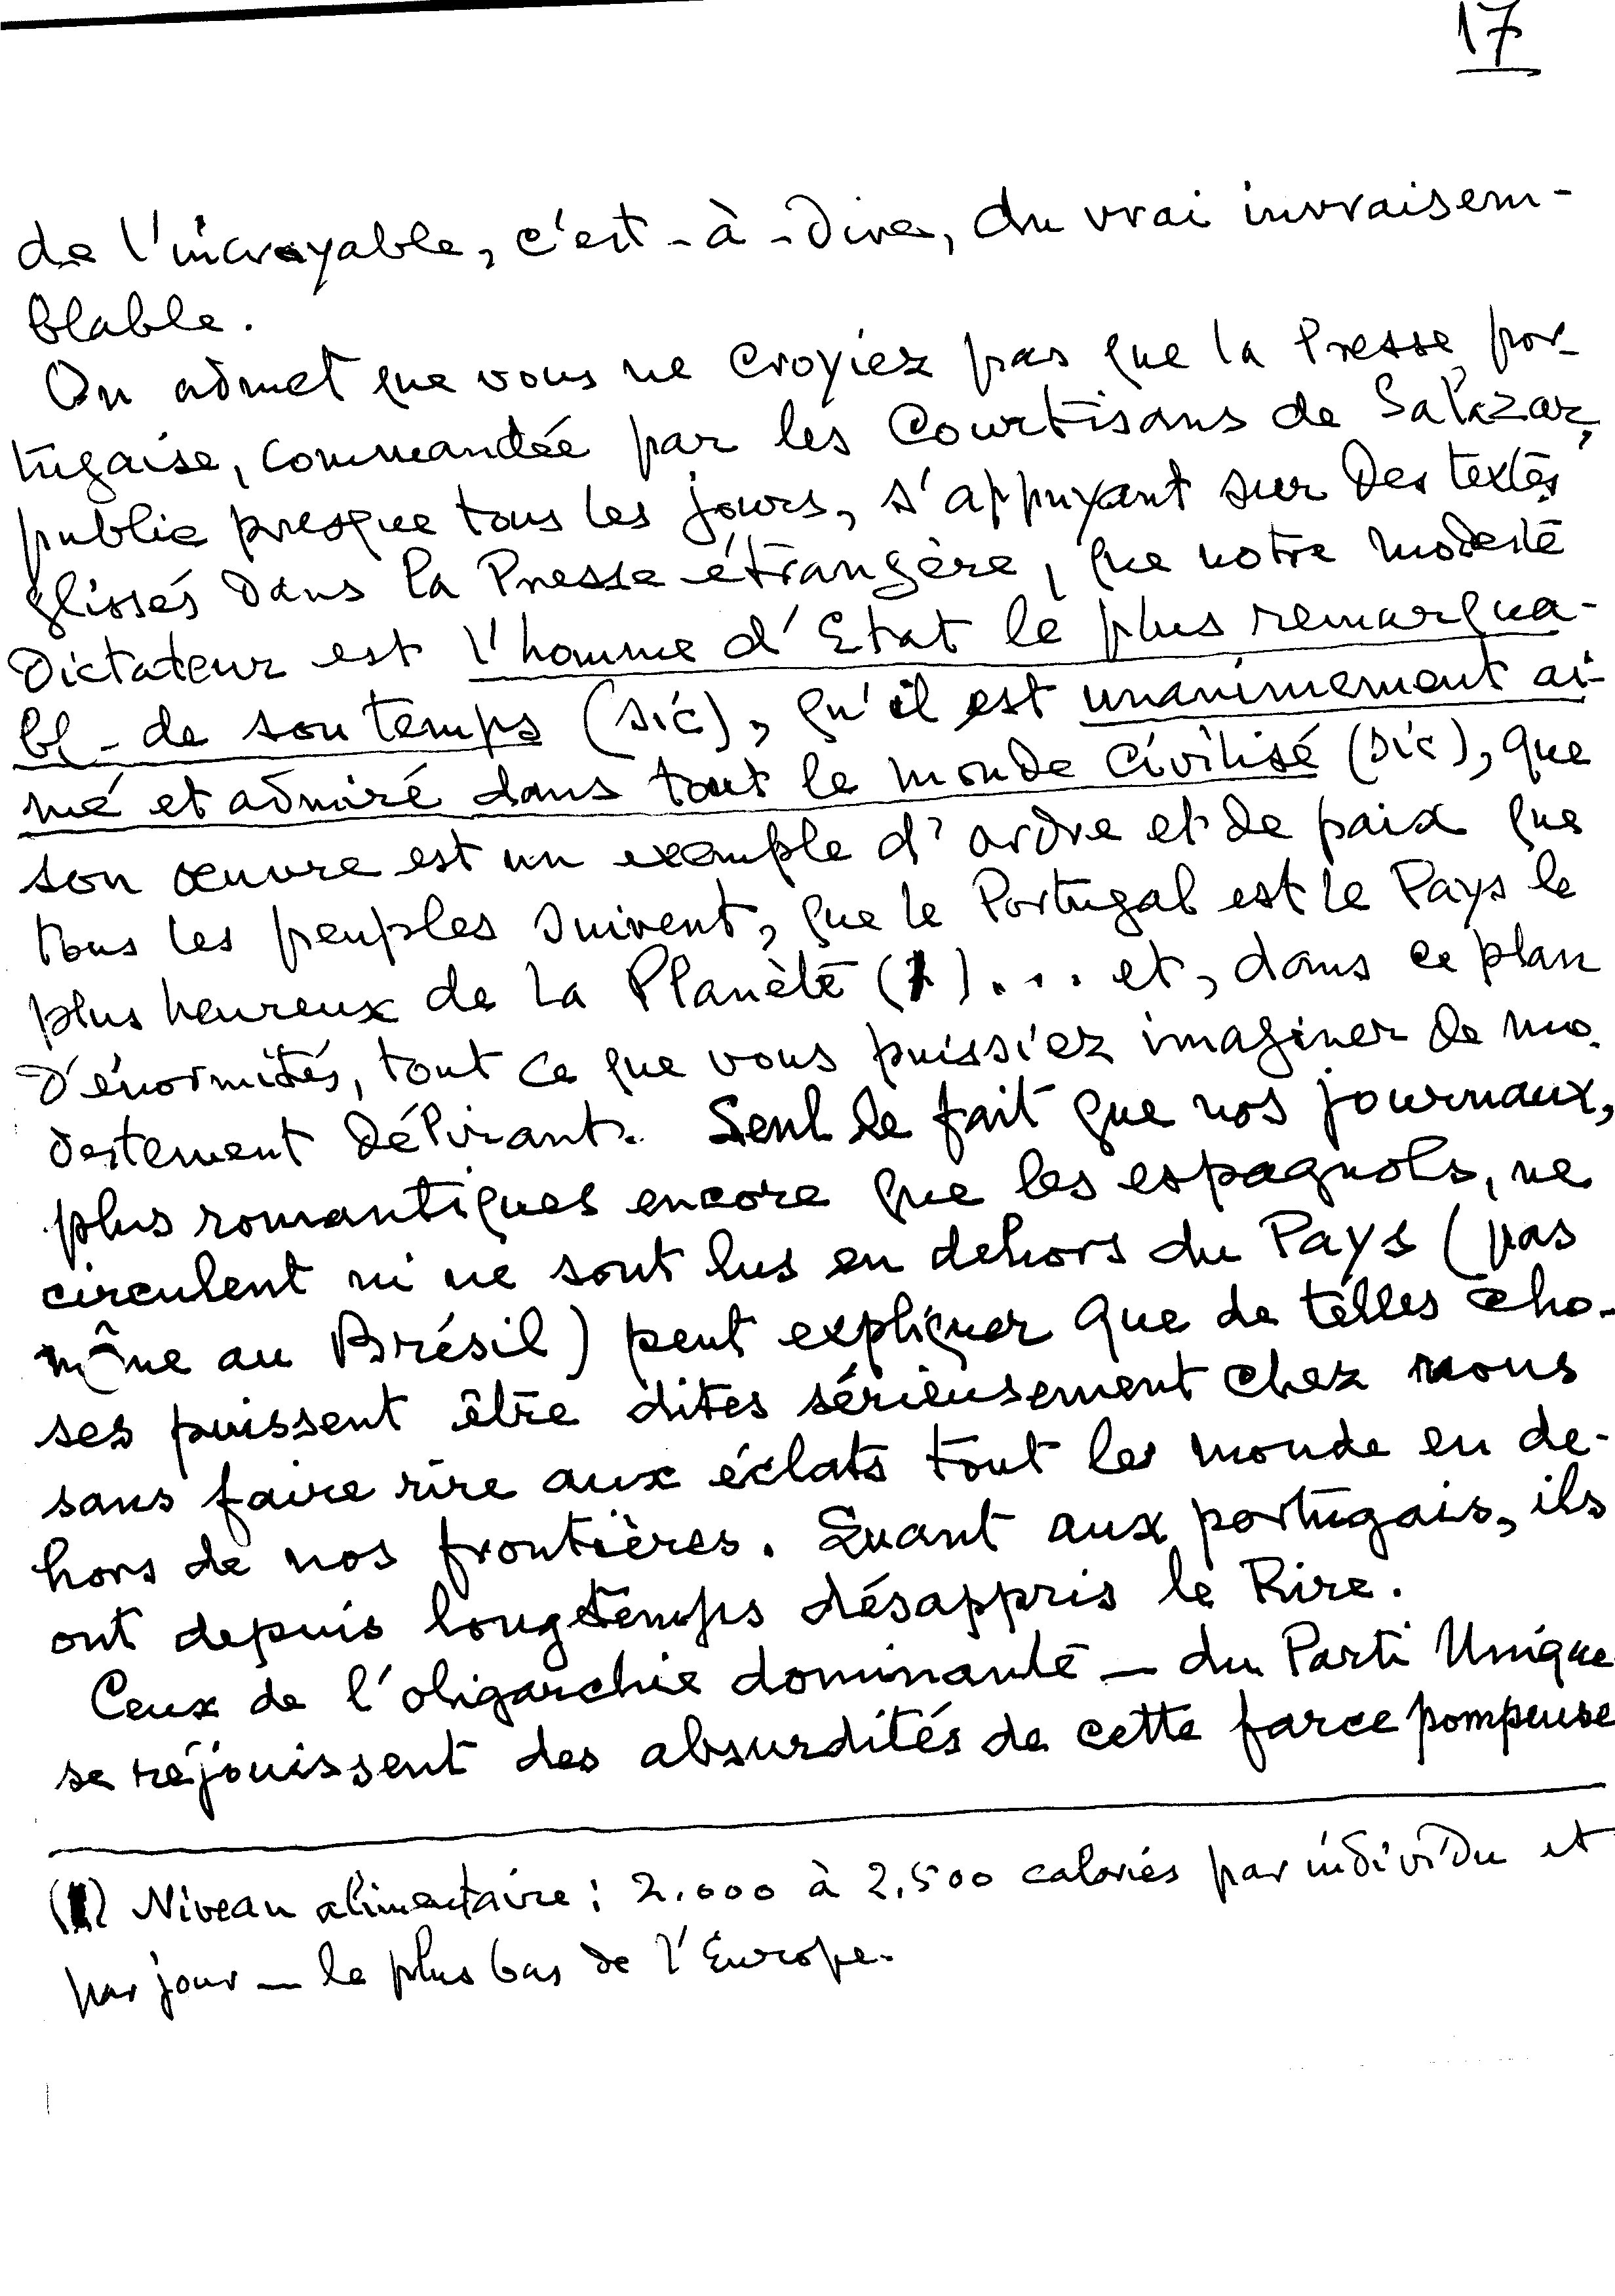 17
de l'incroyable, c'est-à-dire, du vrai invraisem-
blable.
On admet que vous ne croyiez pas que la Presse por-
tugaise, commandée par les Courtisans de Salazar,
publie presque tous les jours, s'appuyant sur des textes
glissés dans la Presse étrangère, que notre modeste
Dictateur est l'homme d'Etat le plus remarqua-
bl- de son temps (sic), qu'il est unanimement ai-
mé et admiré dans tout le monde civilisé (sic), que
son œuvre est un exemple d'ordre et de paix que
tous les peuples suivent, que le Portugal est le Pays le
plus heureux de la Planète (1).... et, dans ce plan
d'énormités, tout ce que vous puissiez imaginer de mo-
destement délirant. Seul le fait que nos journaux,
plus romantiques encore que les espagnols, ne
circulent ni ne sont lus en dehors du Pays (pas
même au Brésil) peut expliquer que de telles cho-
ses puissent être dites sérieusement chez nous
sans faire rire aux éclats tout le monde en de-
hors de nos frontières. Quant aux portugais, ils
ont depuis longtemps désappris le Rire.
Ceux de l'oligarchie dominante — du Parti Unique
se réjouissent des absurdités de cette farce pompeuse
(1) Niveau alimentaire : 2.000 à 2.500 calories par individu et
par jour — le plus bas de l'Europe.